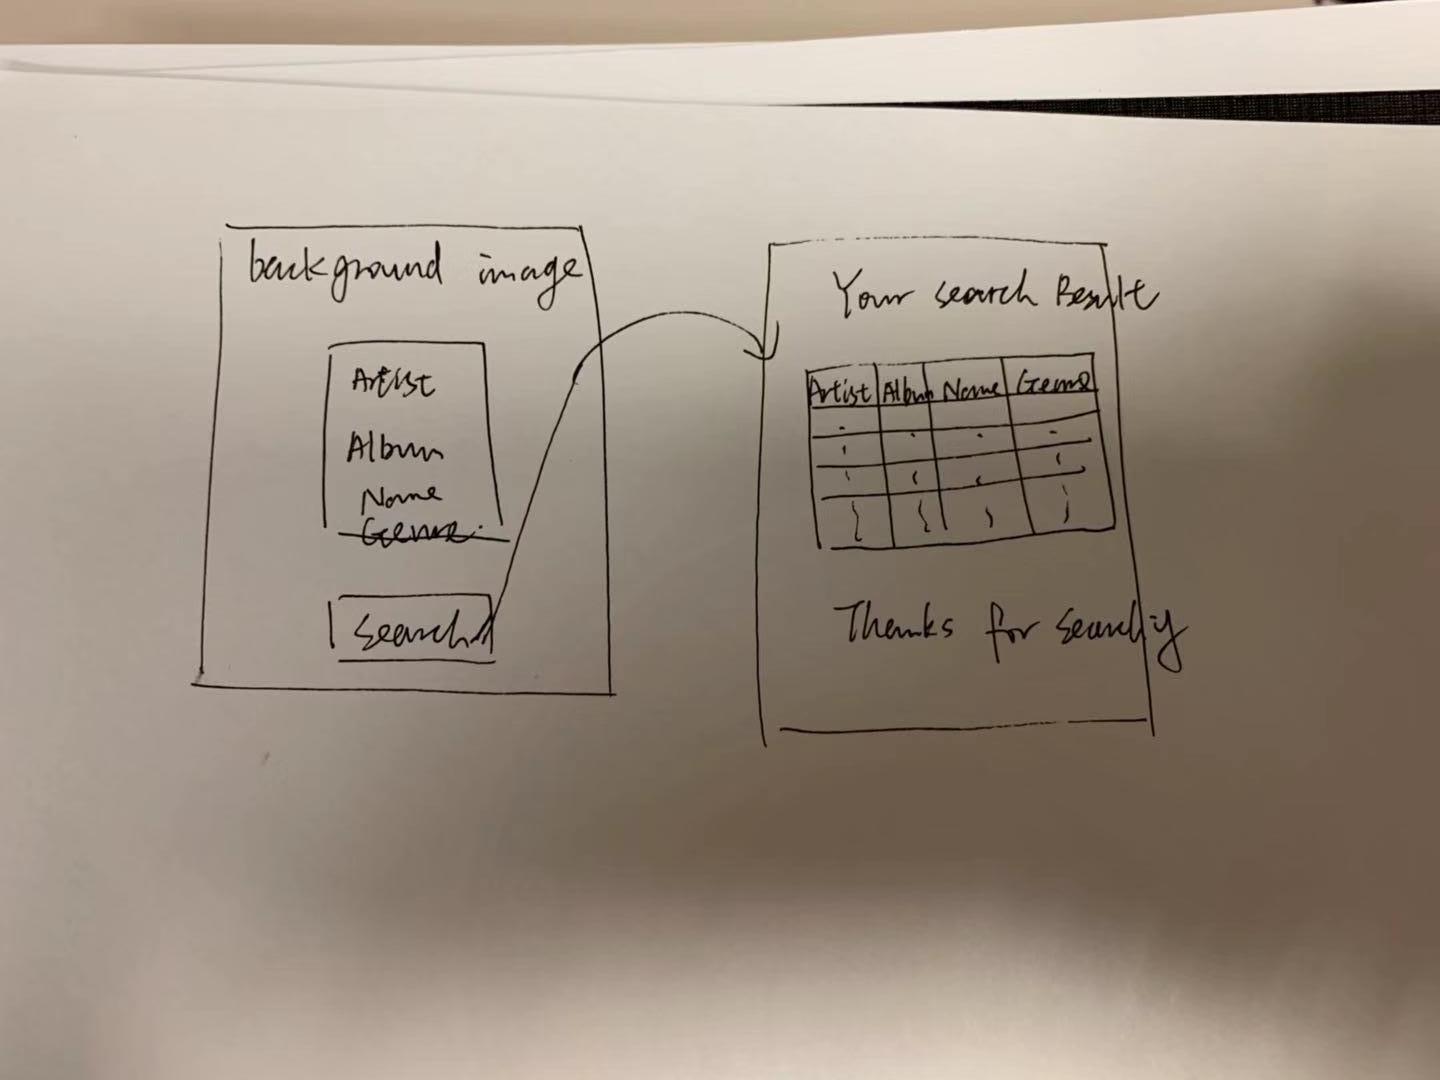 background image
Artist
Album
Name
Genre
Search
Your search Result
Artist Album Name Genre
Thanks for searching